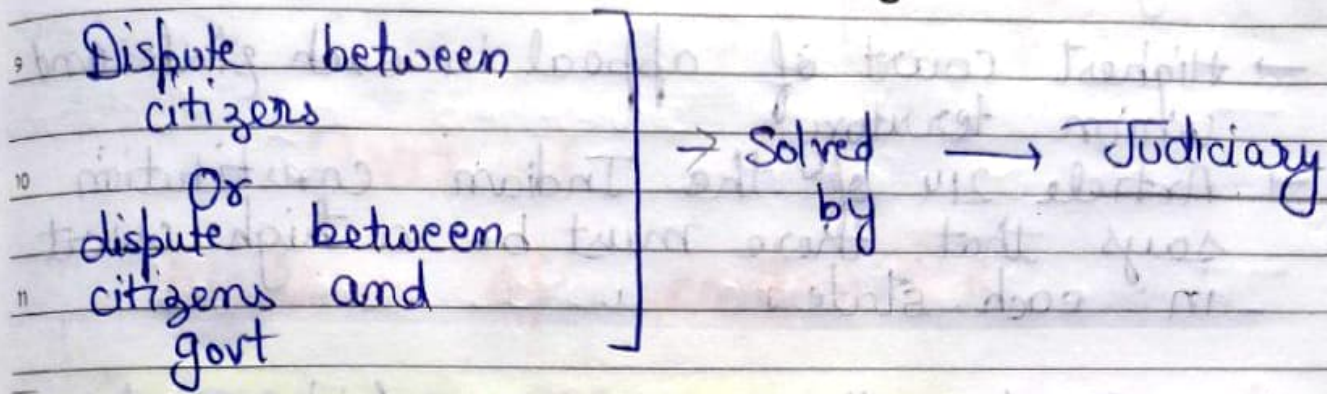 9 Dispute between
citizens
10 Or
dispute between
11 citizens and
govt
→ Solved → Judiciary
by